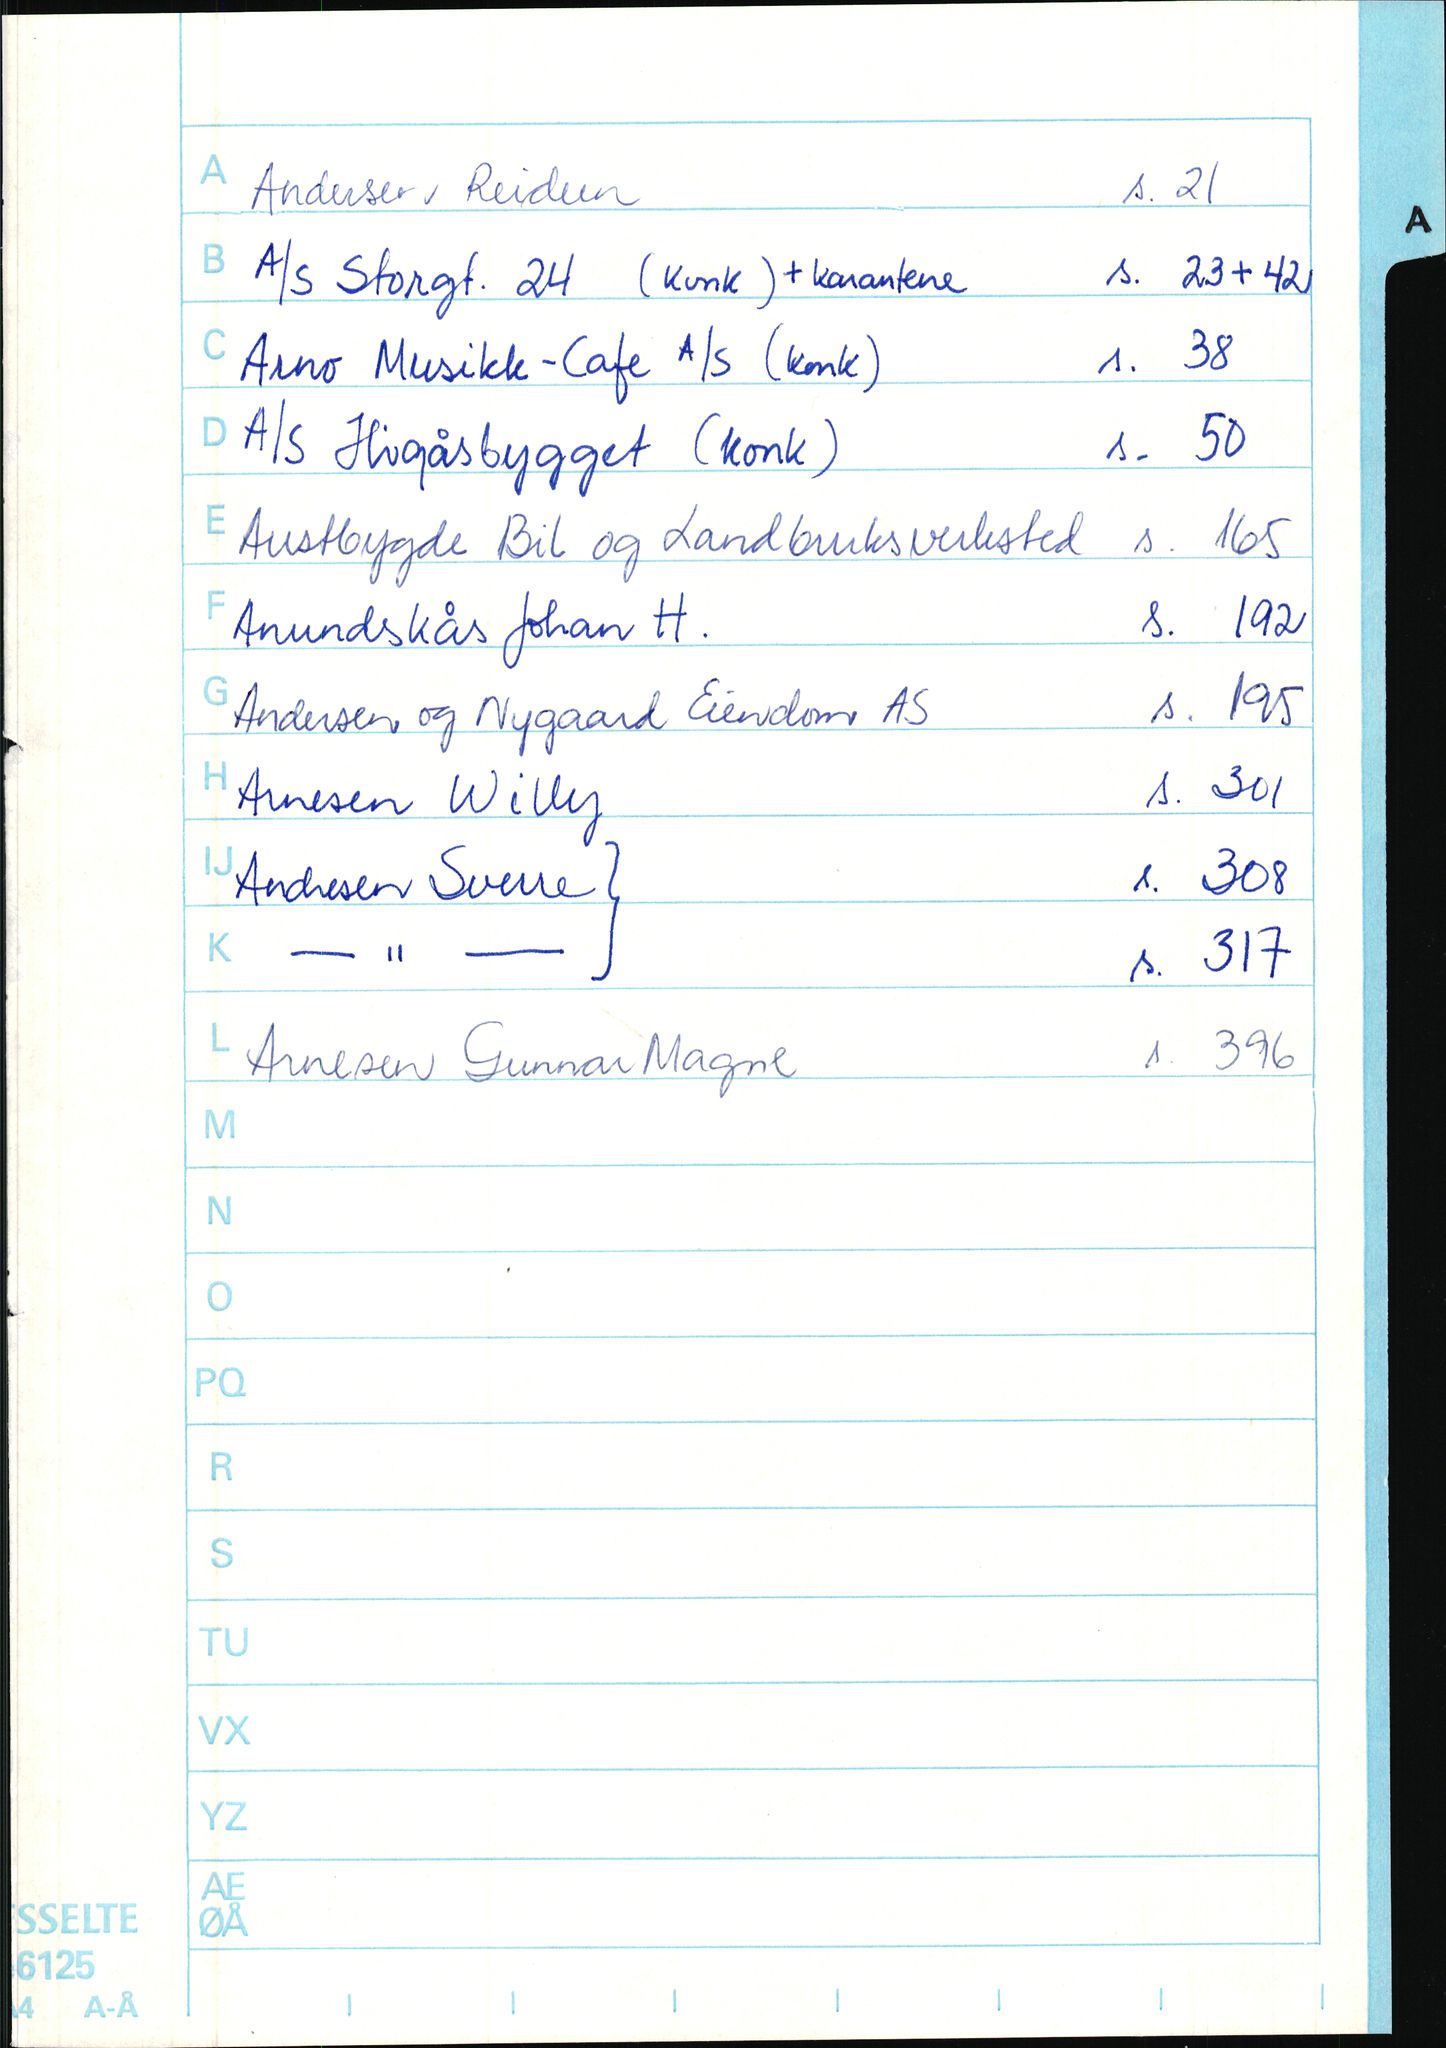 A Andersen, Reidun s. 21
B A/S Storgt. 24 (konk) + karantene s. 23 + 42
C Arno Musikk-Cafe A/S (konk) s. 38
D A/S Hvigåsbygget (konk) s. 50
A
E Austbygde Bil og Landbruksverksted s. 165
F Anundskås Johan H. s. 192
G Andersen og Nygaard Eiendom AS s. 195
H Arnesen Willy s. 301
IJ Andresen Sverre } s. 308
K — " — s. 317
L Arnesen Gunnar Magne s. 396
M
N
O
PQ
R
S
TU
VX
YZ
AE
ØÅ
SSELTE
6125
4 A-Å